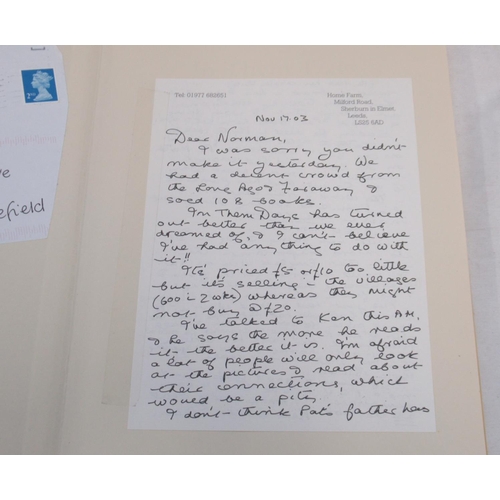 Tel: 01977 682651
Home Farm,
Milford Road,
Sherburn in Elmet,
Leeds,
LS25 6AD
Nov 17.03
Dear Norman,
I was sorry you didn't
make it yesterday. We
had a decent crowd from
the Long Ago & Faraway &
soed 108 books.
In Them Days has turned
out better than we ever
dreamed of, & I can't believe
I've had anything to do with
it!!
It's priced £5 or £10 too little
but it's selling in the villages
(600 in 2 wks) whereas they might
not buy @ £20.
I've talked to Ken this A.M.
& he says the more he reads
it the better it is. I'm afraid
a lot of people will only look
at the pictures & read about
their connections, which
would be a pity.
I don't think Pat's father has
2nd
efield